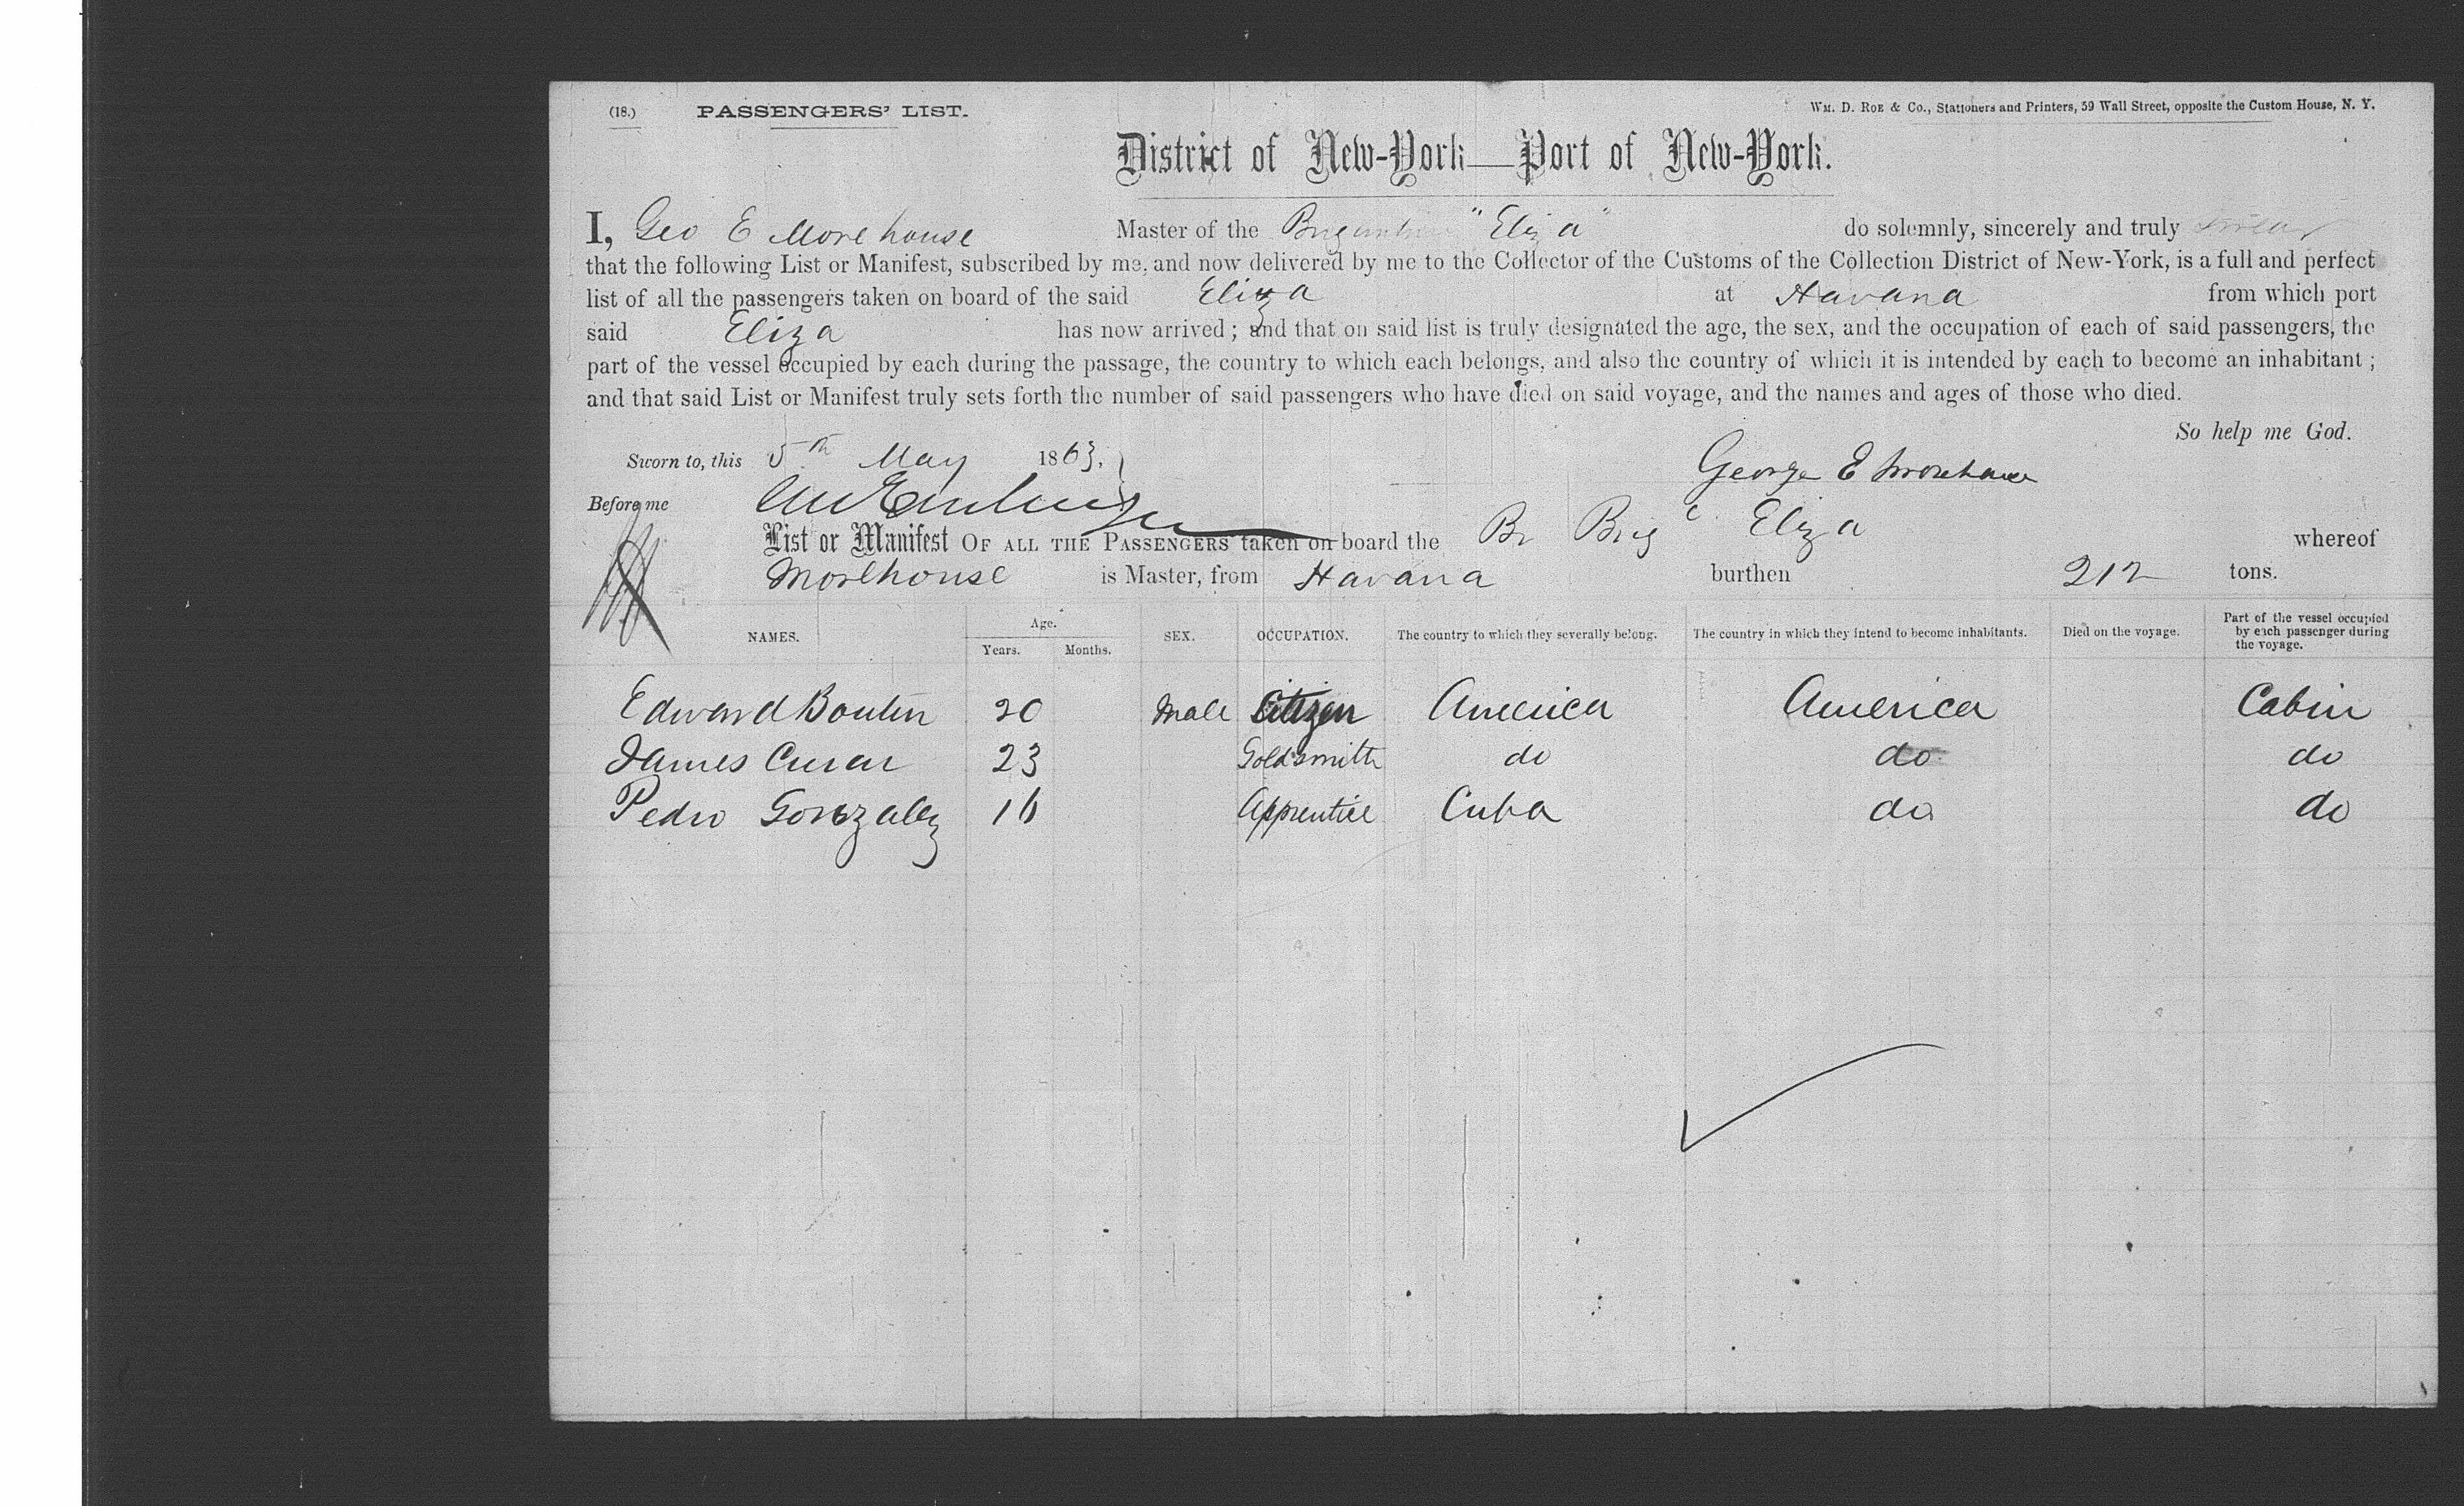 (18.) PASSENGERS' LIST. WM. D. ROE & CO., Stationers and Printers, 59 Wall Street, opposite the Custom House, N. Y.
District of New-York—Port of New-York.
I, Geo E Morehouse Master of the Brigantine "Eliza" do solemnly, sincerely and truly swear
that the following List or Manifest, subscribed by me, and now delivered by me to the Collector of the Customs of the Collection District of New-York, is a full and perfect
list of all the passengers taken on board of the said Eliza at Havana from which port
said Eliza has now arrived; and that on said list is truly designated the age, the sex, and the occupation of each of said passengers, the
part of the vessel occupied by each during the passage, the country to which each belongs, and also the country of which it is intended by each to become an inhabitant;
and that said List or Manifest truly sets forth the number of said passengers who have died on said voyage, and the names and ages of those who died.
So help me God.
Sworn to, this 5th May 1863. George E Morehouse
Before me
List or Manifest OF ALL THE PASSENGERS taken on board the Br Brig Eliza whereof
Morehouse is Master, from Havana burthen 212 tons.
NAMES. Age. Years. Months. SEX. OCCUPATION. The country to which they severally belong. The country in which they intend to become inhabitants. Died on the voyage. Part of the vessel occupied by each passenger during the voyage.
Edward Boutin 20 Male Citizen America America Cabin
James 23 Goldsmith do do do
Pedro Gonzalez 16 Apprentice Cuba do do